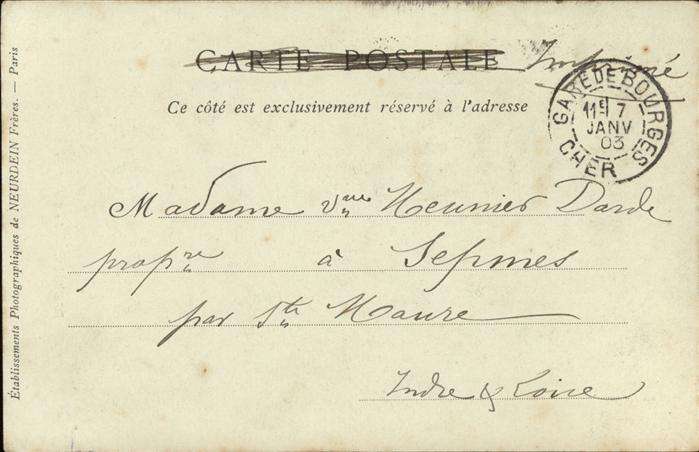 CARTE POSTALE Imprimé
Ce côté est exclusivement réservé à l'adresse
GARE DE BOURGES
11E 7
JANV
03
CHER
Madame vve Meunier Darde
propre à Sepmes
par Ste Maure
Indre & Loire
Établissements Photographiques de NEURDEIN Frères. — Paris